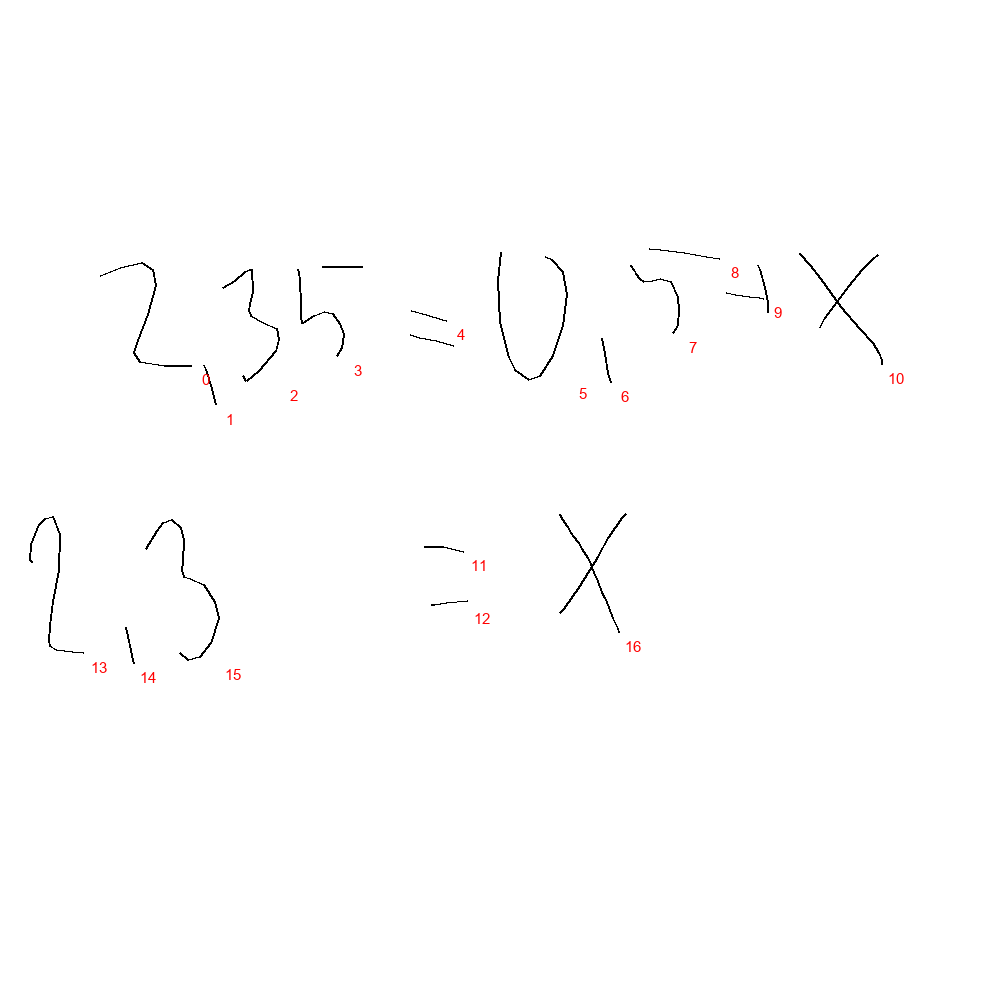 2,35 = 0,5 + X
0 1 2 3 4 5 6 7 8 9 10
2,3 = X
13 14 15 11 12 16